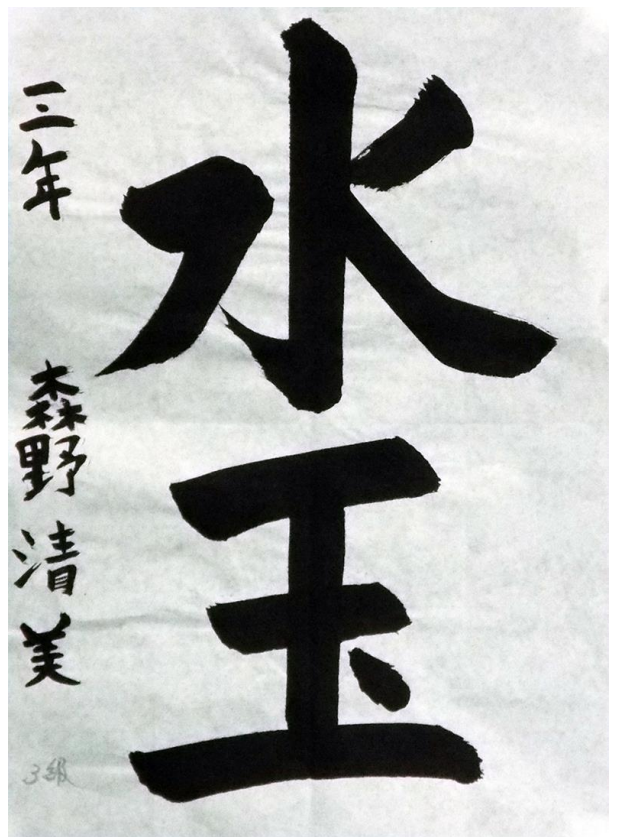 水玉
三年 森野清美
3級